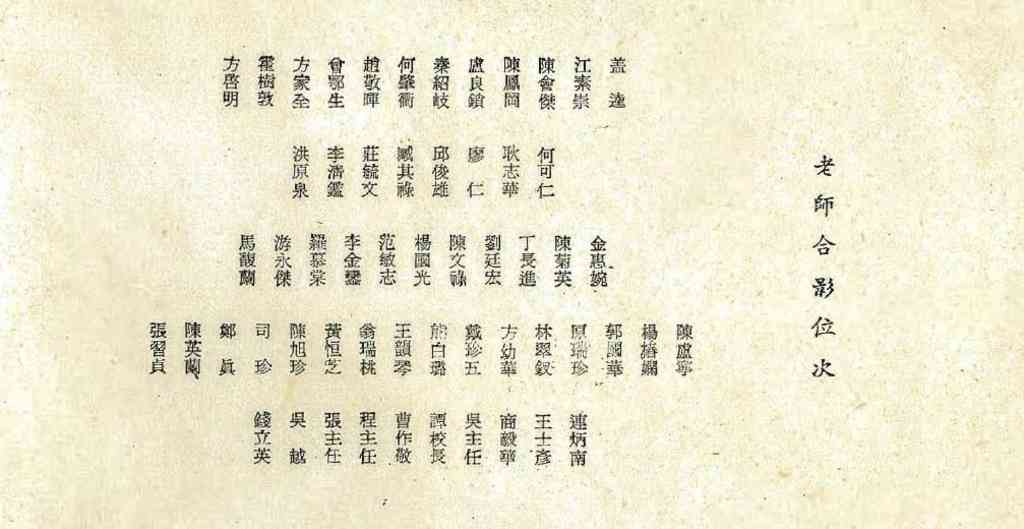 老師合影位次
蓋達
江素崇
陳會傑
陳鳳岡
盧良鎖
秦紹岐
何肇衢
趙敬暉
曾鄂生
方家全
霍樹敦
方啓明
何可仁
耿志華
廖仁
邱俊雄
臧其祿
莊毓文
李清鑑
洪原泉
金惠婉
陳菊英
丁長進
劉廷宏
陳文祿
楊國光
范敏志
李金鑾
羅慕棠
游永傑
馬馥蘭
陳盧寧
楊嫺
郭國華
原瑞珍
林翠釵
方幼華
戴珍五
熊白璐
王韻琴
翁瑞桃
黃恒芝
陳旭珍
司珍
鄭眞
陳英蘭
張習貞
連炳南
王士彥
商毅華
吳主任
譚校長
曹作敬
程主任
張主任
吳越
錢立英